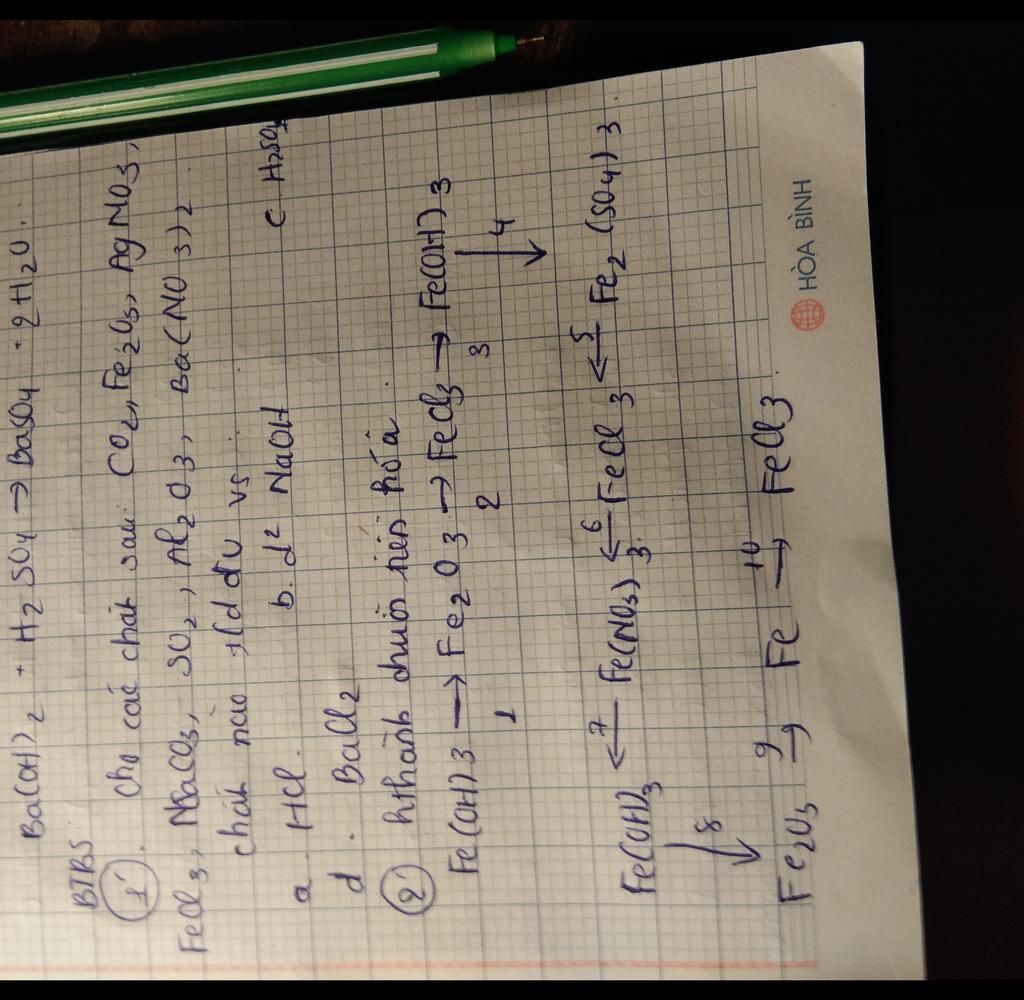 Ba(OH)2 + H2SO4 → BaSO4 + 2H2O.
BTBS
① Cho các chất sau: CO2, Fe2O3, AgNO3,
FeCl3, NaCO3, SO2, Al2O3, Ba(NO3)2
chất nào t/d đc vs :
a. HCl. b. d² NaOH c H2SO4
d. BaCl2
② hthành chuỗi biến hoá
Fe(OH)3 → Fe2O3 → FeCl3 → Fe(OH)3
1 2 3 ↓4
Fe(OH)3 ←7 Fe(NO3)3 ←6 FeCl3 ←5 Fe2(SO4)3
↓8
Fe2O3 →9 Fe →10 FeCl3
HÒA BÌNH